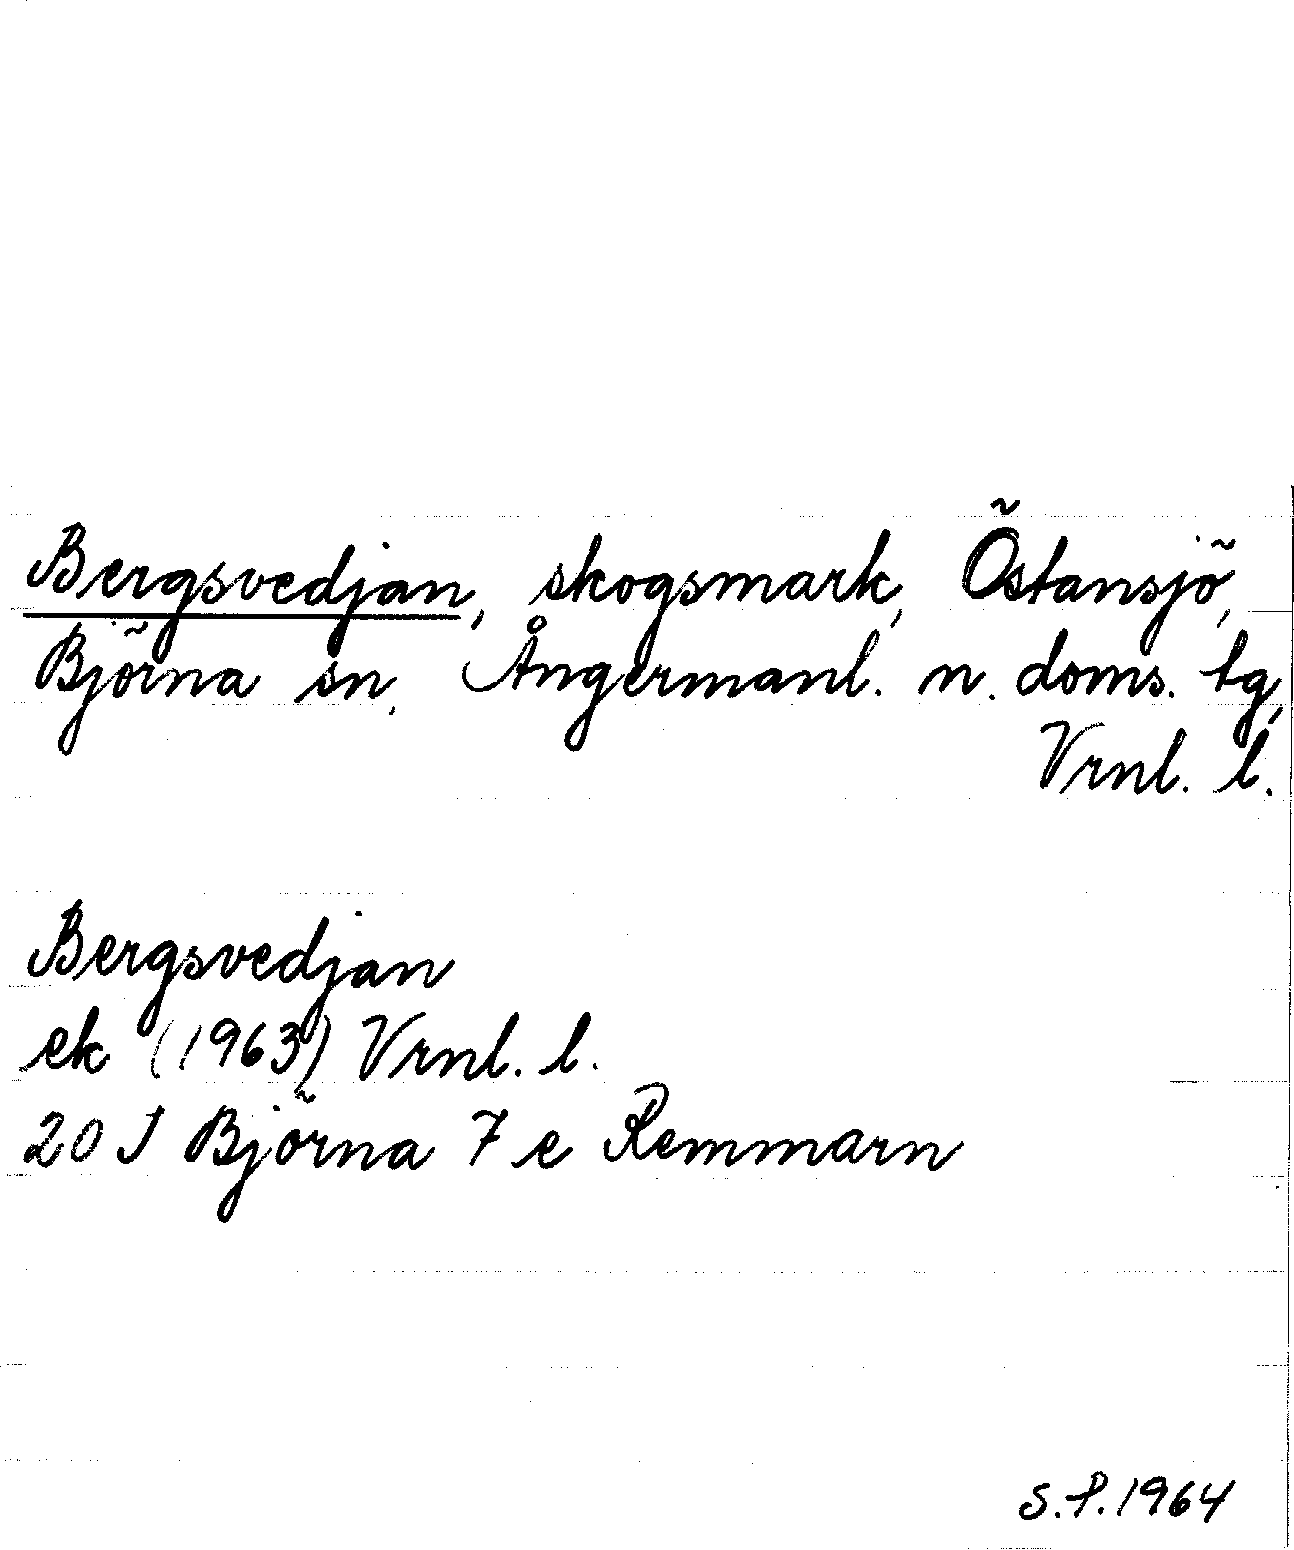 Bergsvedjan, skogsmark, Östansjö,
Björna sn, Ångermanl. n. doms. tg,
Vrnl. l.
Bergsvedjan
ek (1963) Vrnl. l.
20 J Björna 7 e Remmarn
S.P. 1964